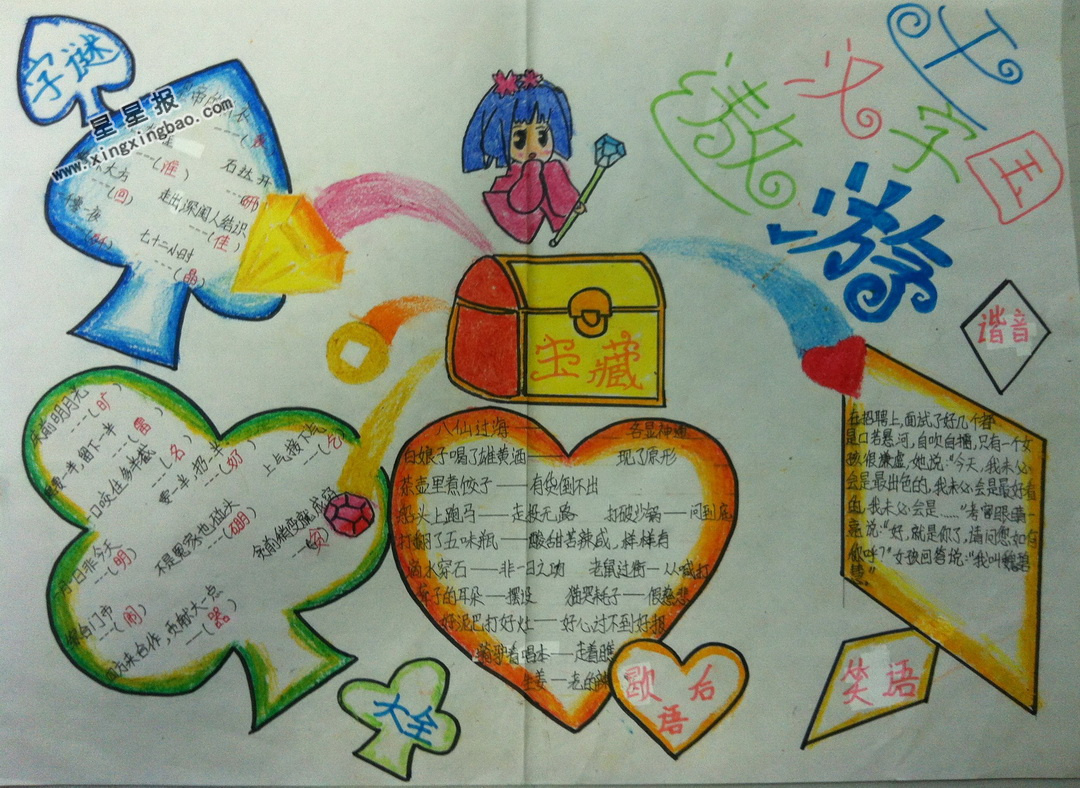 字谜
星星报
www.xingxingbao.com
---(准)
石达开
---(研)
---(回)
走出深闺人结识
---(佳)
七十二小时
---(晶)
遨汉字王国
游
宝藏
谐音
床前明月光
---(旷)
---(雷)
口咬住多半截
---(名)
需一半，扔一半
---(奶)
上气接下气
---(乞)
---(硼)
---(贫)
昨日非今天
---(明)
---(闹)
四方来合作，贡献大一点
---(器)
大全
八仙过海——各显神通
白娘子喝了雄黄酒——现了原形
茶壶里煮饺子——有货倒不出
船头上跑马——走投无路 打破沙锅——问到底
打翻了五味瓶——酸甜苦辣咸，样样有
滴水穿石——非一日之功 老鼠过街——人喊打
聋子的耳朵——摆设 猫哭耗子——假慈悲
好泥巴打好灶——好心讨不到好报
骑驴看唱本——走着瞧
生姜——老的辣
歇后语
在招聘上，面试了好几个都
是口若悬河，自吹自擂，只有一个女
孩很谦虚，她说：“今天，我未必
会是最出色的，我未必会是最好看
的，我未必会是……”考官眼睛一
亮说：“好，就是你了，请问您如何
称呼？”女孩回答说：“我叫魏碧
慧”
笑语